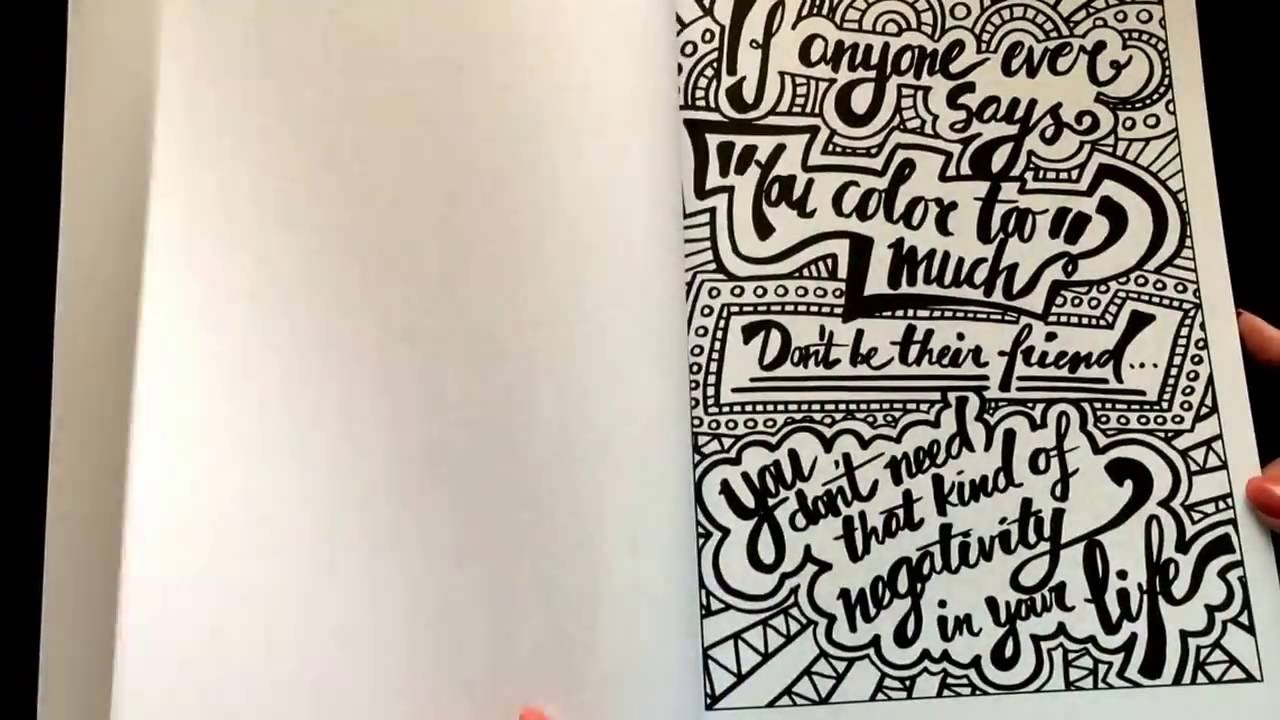 If anyone ever
says
"You color too"
much
Don't be their friend...
you
don't need
that kind of
negativity
in your life